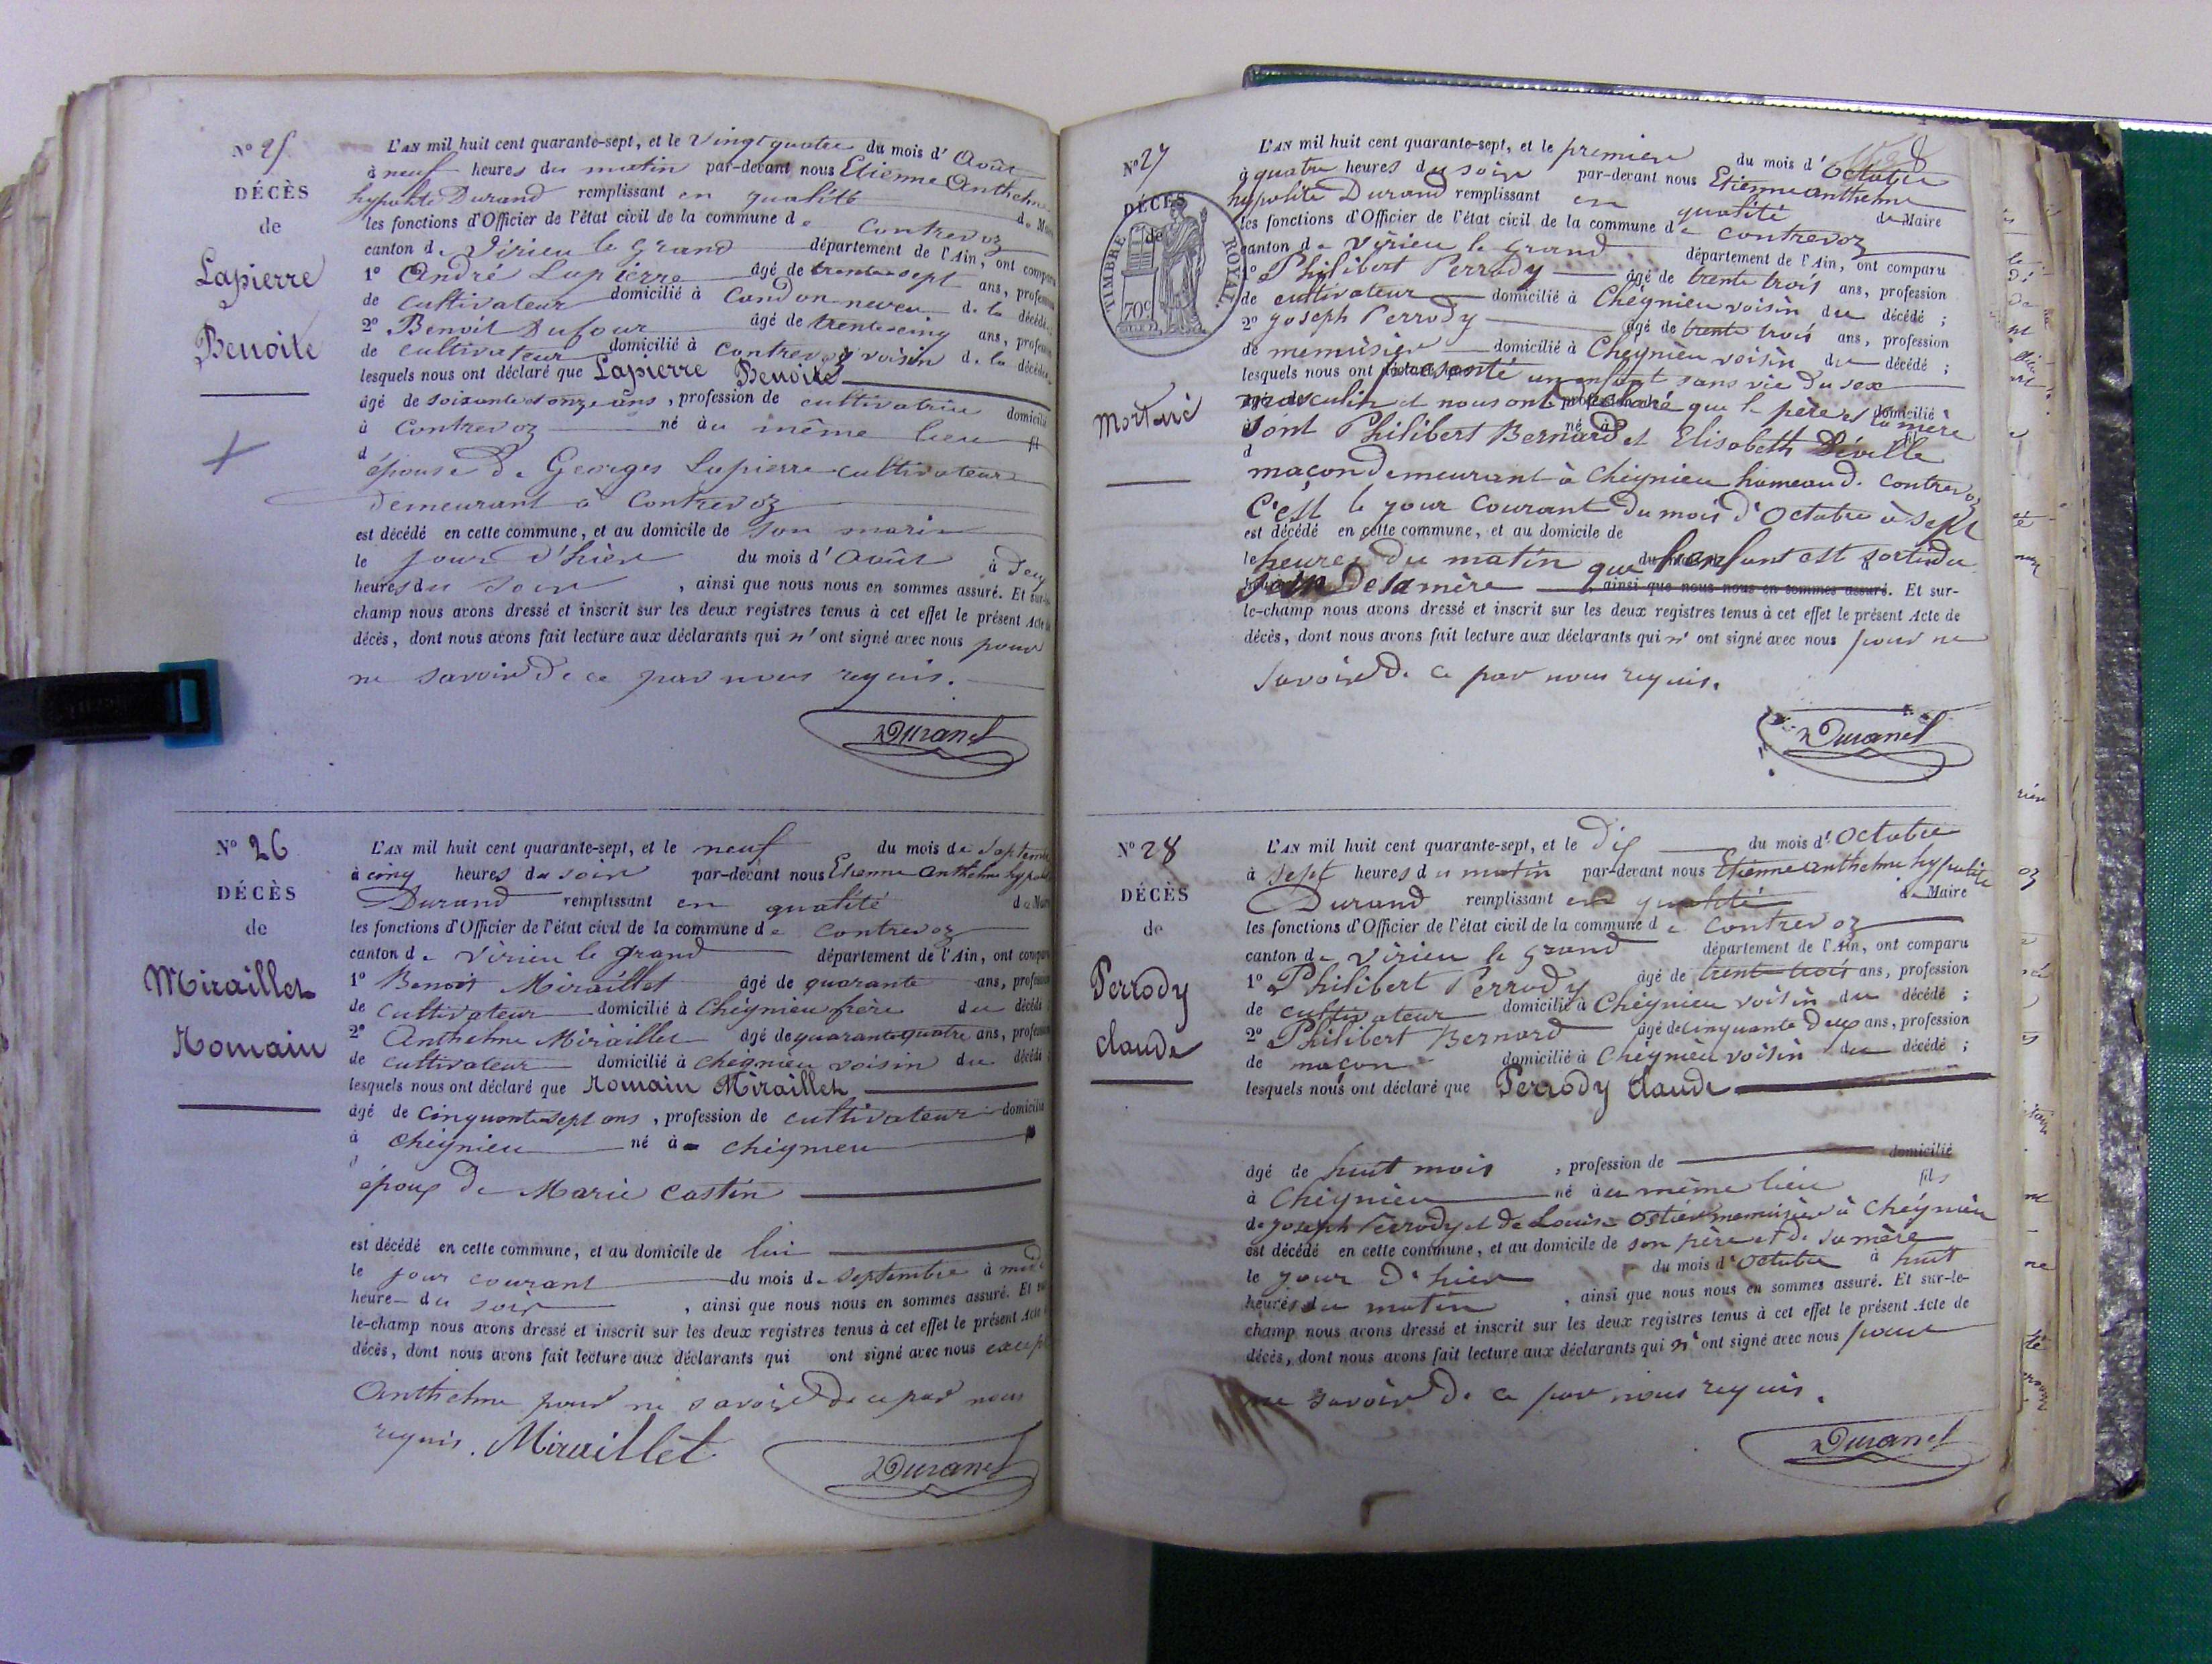 N° 25
DÉCÈS
de
Lapierre
Benoite
L'AN mil huit cent quarante-sept, et le Vingt quatre du mois d'Août
à neuf heures du matin par-devant nous Etienne Anthelme
hypolite Durand remplissant en qualité de
les fonctions d'Officier de l'état civil de la commune de Contrevoz
canton de Virieu le grand département de l'Ain, ont comparu
1° André Lapierre âgé de trente sept ans, profession
de cultivateur domicilié à Condon neveu de la décédée
2° Benoit Dufour âgé de trente cinq ans, profession
de cultivateur domicilié à Contrevoz voisin de la décédée
lesquels nous ont déclaré que Lapierre Benoite
âgé de soixante et onze ans, profession de cultivatrice domicilié
à Contrevoz né au même lieu fil
d
épouse de Georges Lapierre cultivateur
demeurant à Contrevoz
est décédé en cette commune, et au domicile de son marie
le jour d'hier du mois d'Août à deux
heures du soir, ainsi que nous nous en sommes assuré. Et sur-le-
champ nous avons dressé et inscrit sur les deux registres tenus à cet effet le présent Acte de
décès, dont nous avons fait lecture aux déclarants qui n'ont signé avec nous pour
ne savoir de ce par nous requis.
Durand
N° 26
DÉCÈS
de
Miraillet
Romain
L'AN mil huit cent quarante-sept, et le neuf du mois de Septembre
à cinq heures du soir par-devant nous Etienne anthelme hypolite
Durand remplissant en qualité de Maire
les fonctions d'Officier de l'état civil de la commune de Contrevoz
canton de Virieu le grand département de l'Ain, ont comparu
1° Benoit Miraillet âgé de quarante ans, profession
de cultivateur domicilié à Cheignieu frère du décédé
2° Anthelme Miraillet âgé de quarante quatre ans, profession
de cultivateur domicilié à cheignieu voisin du décédé
lesquels nous ont déclaré que Romain Miraillet
âgé de cinquante sept ans, profession de cultivateur domicilié
à cheignieu né à cheignieu
époux de Marie Castin
est décédé en cette commune, et au domicile de lui
le jour courant du mois de septembre à midi
heure du soir, ainsi que nous nous en sommes assuré. Et sur-
le-champ nous avons dressé et inscrit sur les deux registres tenus à cet effet le présent Acte
décès, dont nous avons fait lecture aux déclarants qui ont signé avec nous excepté
Anthelme pour ne savoir de ce par nous
requis. Miraillet
Durand
N° 27
DÉCÈS
de
TIMBRE ROYAL
70c
Mort né
L'AN mil huit cent quarante-sept, et le premier du mois d'Octobre
à quatre heures du soir par-devant nous Etienne anthelme
hypolite Durand remplissant en qualité de Maire
les fonctions d'Officier de l'état civil de la commune de contrevoz
canton de Virieu le grand département de l'Ain, ont comparu
1° Philibert Perrody âgé de trente trois ans, profession
de cultivateur domicilié à Cheignieu voisin du décédé;
2° Joseph Perrody âgé de trente trois ans, profession
de menuisier domicilié à Cheignieu voisin du décédé;
lesquels nous ont présenté un enfant sans vie du sex
masculin et nous ont déclaré que le père et la mère
sont Philibert Bernard et Elisabeth Déville
maçon demeurant à Cheignieu hameau de Contrevoz
C'est le jour courant du mois d'Octobre à sept
est décédé en cette commune, et au domicile de
le heures du matin que l'enfant est sorti du
sein de la mère ainsi que nous nous en sommes assuré. Et sur-
le-champ nous avons dressé et inscrit sur les deux registres tenus à cet effet le présent Acte de
décès, dont nous avons fait lecture aux déclarants qui n'ont signé avec nous pour ne
savoir de ce par nous requis.
Durand
N° 28
DÉCÈS
de
Perrody
claude
L'AN mil huit cent quarante-sept, et le dix du mois d'Octobre
à sept heures du matin par-devant nous Etienne anthelme hypolite
Durand remplissant en qualité de Maire
les fonctions d'Officier de l'état civil de la commune de Contrevoz
canton de Virieu le grand département de l'Ain, ont comparu
1° Philibert Perrody âgé de trente trois ans, profession
de cultivateur domicilié à Cheignieu voisin du décédé;
2° Philibert Bernard âgé de cinquante deux ans, profession
de maçon domicilié à Cheignieu voisin du décédé;
lesquels nous ont déclaré que Perrody Claude
âgé de huit mois, profession de domicilié
à Cheignieu né au même lieu fils
de Joseph Perrody et de Louise Ostier menuisier à Cheignieu
est décédé en cette commune, et au domicile de son père et de sa mère
le jour d'hier du mois d'Octobre à huit
heures du matin, ainsi que nous nous en sommes assuré. Et sur-le-
champ nous avons dressé et inscrit sur les deux registres tenus à cet effet le présent Acte de
décès, dont nous avons fait lecture aux déclarants qui n'ont signé avec nous pour
ne savoir de ce par nous requis.
Durand